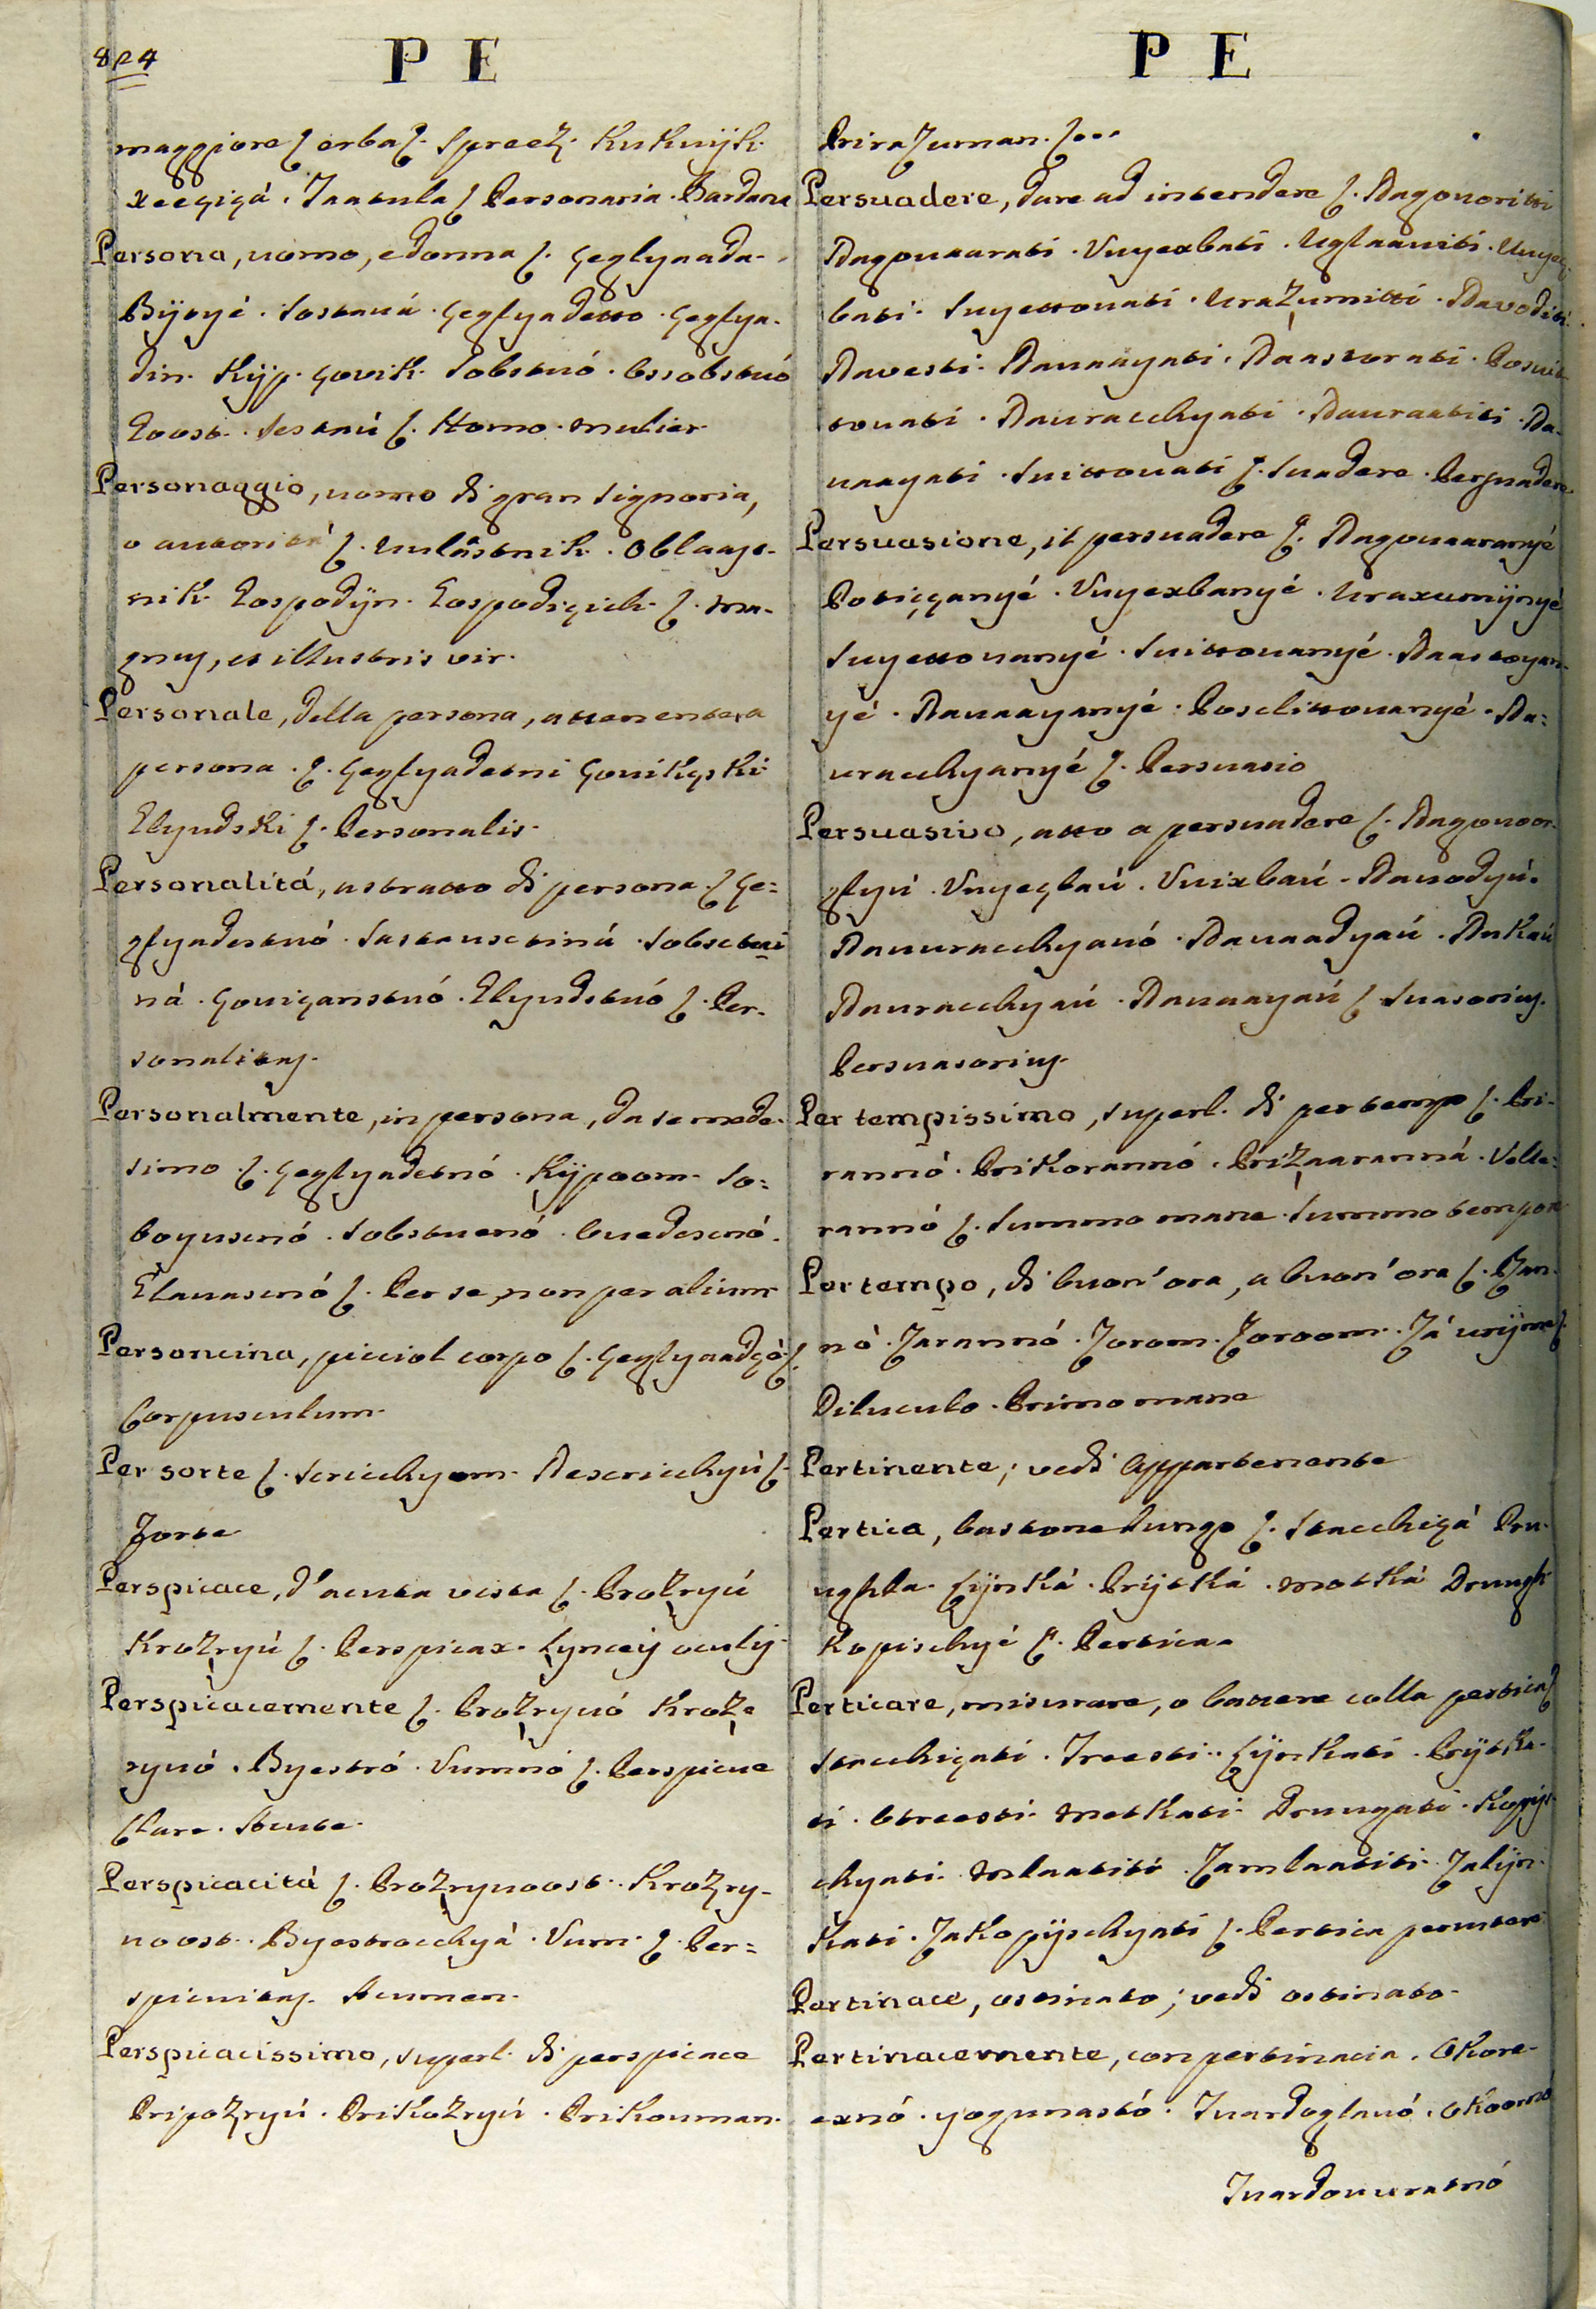 824
P E
maggiore ∫ erba ∫. Spreeż. Kukuijk.
xeeçiçá. Jaatula ∫ Personaria. Bardana
Persona, uomo, e donna ∫. çeglyaada-
Bijtyé. Sostaná. çeglyadetto. çeglya-
din. Kijp. çovik. Sobstuó. Ossobstuó
Goost. Sestnú ∫. Homo. mulier.
Personaggio, uomo di gran Signoria,
o autoritá ∫. uulástnik. Oblaast-
nik. Gospodijn. Gospodiçich. ∫. ma-
gnus, et illustris vir.
Personale, della persona, attenente a
persona. ∫. çeglyadetni çovikçski
Glyudski ∫. Personalis.
Personalitá, astratto di persona. ∫ çe=
glyadestuó. Sastausctiná. Sobsctui
ná. çouiçanstuó. Glyudstuó ∫. Per-
sonalitas.
Personalmente, in persona, da se mede-
simo. ∫. çeglyadetnó. Kijpoom. So=
boyuscnó. Sobstuenó. Ouedescnó.
Glauascnó ∫. Per se, non per alium
Personcina, picciol corpo ∫. çeglyaadçó ∫.
Corpusculum.
Per sorte ∫. Scricchyom. Nescricchyú ∫.
Forte
Perspicace, d'acuta vista ∫. Prożryú
Krożryú ∫. Perspicax. Lynceij oculij.
Perspicacemente ∫. Prożryuó Kroż-
ryuó. Byestró. Vumnó ∫. Perspicue
Clare. Acute.
Perspicacitá ∫. Prożrynoost. Krożry-
noost. Byestrocchyá. Vum. ∫. Per=
spicuitas. Acumen.
Perspicacissimo, superl. di perspicace
Pripożryú. Prikożryú. Prikouman.
P E
Pirażuman. ∫...
Persuadere, dare ad intendere ∫. Nagouoritti
Nagouaarati. Vuyexbati. Uglaauiti. Uuyex-
bati. Suyettouati. Urażumitti. Navoditi.
Navesti. Nauaayati. Naastorati. Posuit-
touati. Nauracchyati. Nauraatiti. Na-
uaayati. Suittouati ∫. Suadere. Persuadere.
Persuasione, il persuadere ∫. Nagouaaranyé
Poticçanyé. Vuyexbanyé. Uraxumijnyé
Suyettouanyé. Suittouanyé. Naastoyan-
yé. Nauaayanyé. Poselittouanyé. Na=
uracchyanyé ∫. Persuasio
Persuasivo, atto a persuadere ∫. Nagouoor-
glyú. Vuyeçbaú. Vuixbaú. Nauodyú.
Nauuracchyauó. Nauaadyaú. Nukaú
Nauracchyaú. Nauaayaú ∫ Suasorius.
Persuasorius.
Per tempissimo, superl. di per tempo ∫. Pri-
rannó. Prikorannó. Priżaaranná. Velle-
rannó ∫. Summo mane. Summo tempore
Per tempo, di buon' ora, a buon' ora ∫. Ran-
nó. Zarannó. Zorom. Zoroom. Zá urijme ∫.
Diluculo. Primo mane
Pertinente; vedi Appartenente
Pertica, bastone lungo ∫. Stacchiçá Pru-
ughla. Lijnká. Prijtká. Motká Drungh
Kopischyé ∫. Pertica.
Perticare, misurare, o battere colla pertica ∫
Stacchiçati. Treesti. Lijnkati. Prijtka-
ti. Otreesti. Motkati. Drungati. Kopijs-
chyati. Mlaatiti. Zamlaatiti. Zalijn-
kati. Zakopijschyati ∫. Pertica percutere
Pertinace, ostinato; vedi ostinato.
Pertinacemente, con pertinacia. Okore-
exnó. yogunastó. Tuardoglauó. Okoornó
Tuardouuratnó